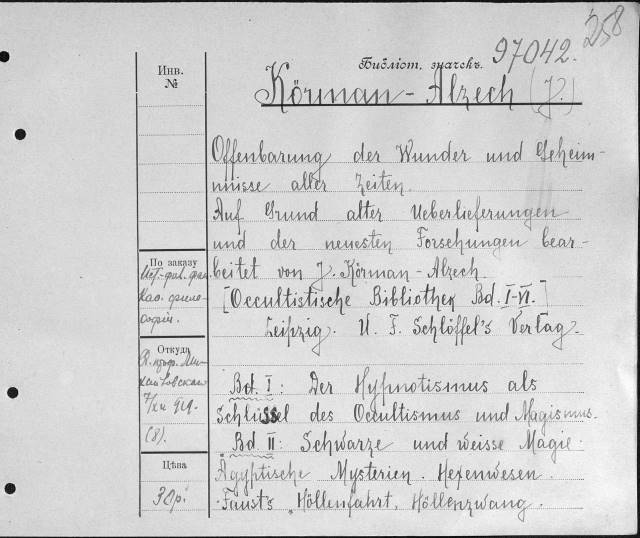 258
97042.
Библіот. значекъ.
Инв.
№
Körman-Alzech (J.)
Offenbarung der Wunder und Geheim-
nnisse alter Zeiten.
Auf Grund alter Ueberlieferungen
und der neuesten Forschungen bear-
beitet von J. Körman-Alzech.
[Occultistische Bibliothek Bd. I-VI.]
Leipzig. U. F. Schlöffel's Verlag.
По заказу
Ист.-фил. фак.
Каб. фило-
софіи.
Откуда
7/XII 919.
(8).
Цѣна
30р.
Bd. I: Der Hypnotismus als
Schlüssel des Occultismus und Magismus.
Bd II: Schwarze und weisse Magie.
Ägyptische Mysterien. Hexenwesen.
Faust's Höllenfahrt, Höllenzwang.